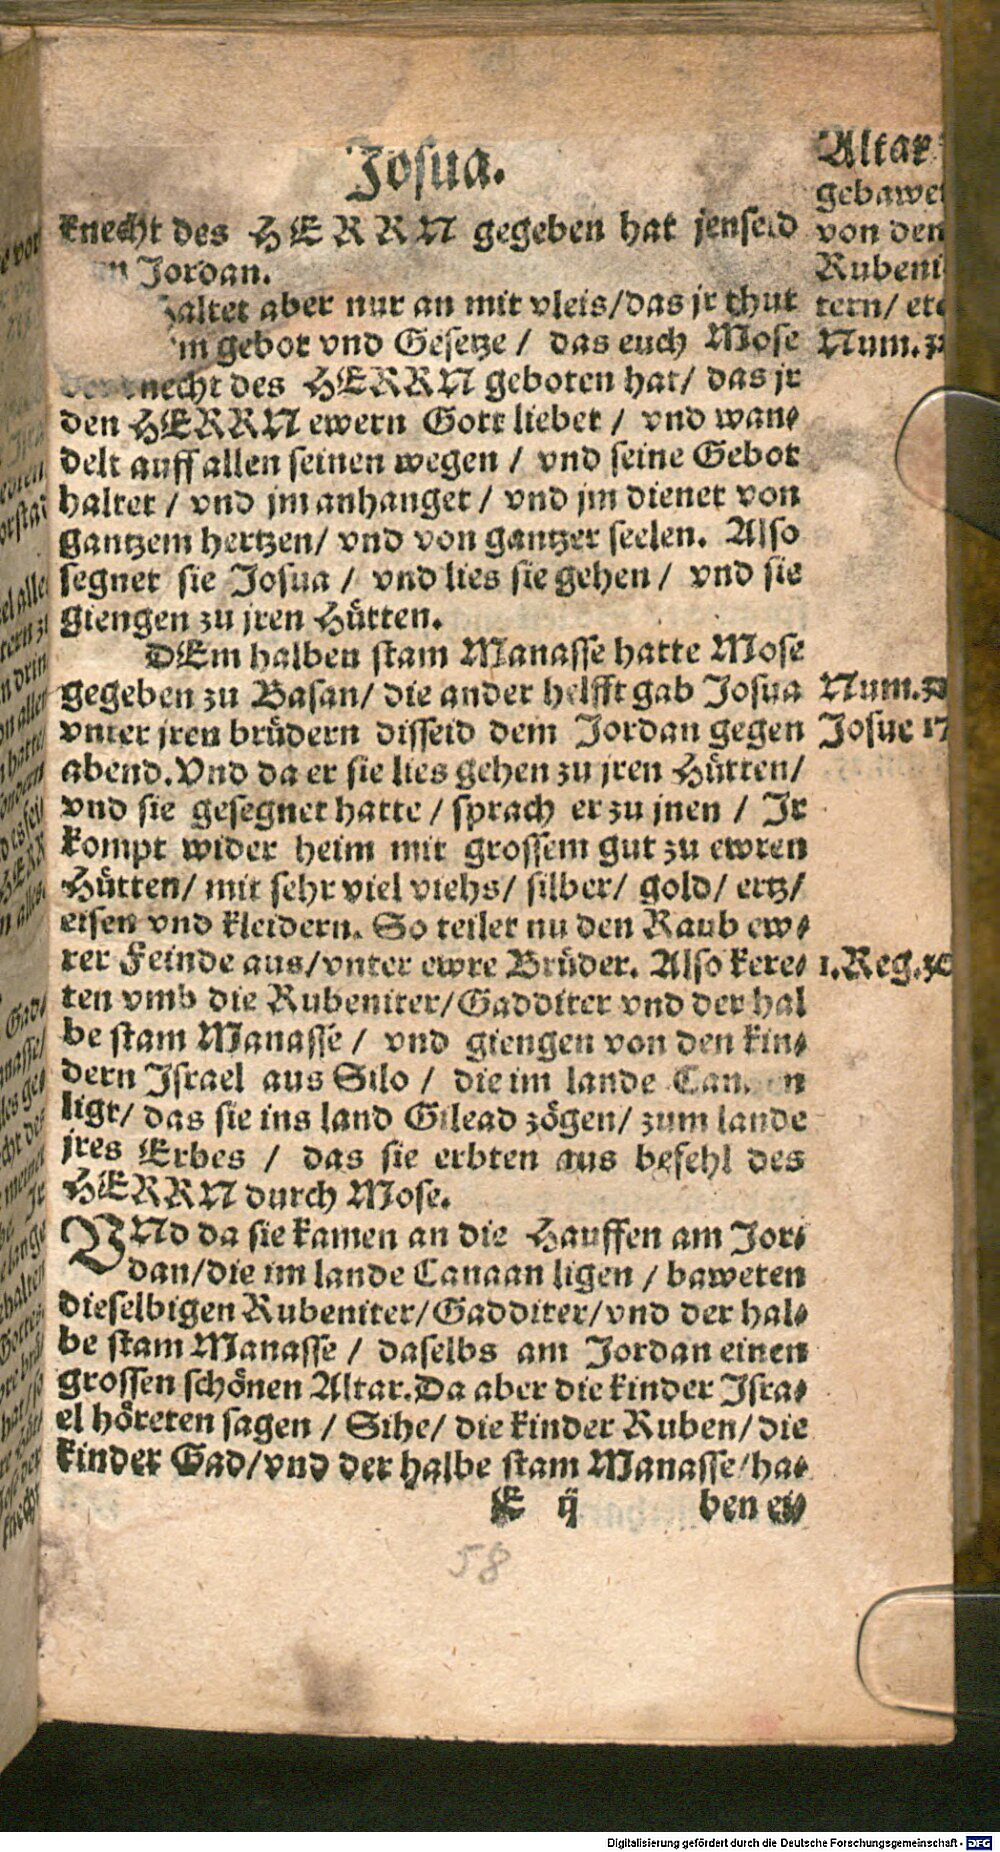 Josua.
knecht des HERRN gegeben hat jenseid
Jordan.
haltet aber nur an mit vleis/das jr thut
gebot vnd Gesetze / das euch Mose
knecht des HERRN geboten hat/ das jr
den HERRN ewern Gott liebet / vnd wan⸗
delt auff allen seinen wegen / vnd seine Gebot
haltet / vnd jm anhanget / vnd jm dienet von
gantzem hertzen/ vnd von gantzer seelen. Also
segnet sie Josua / vnd lies sie gehen / vnd sie
giengen zu jren Hütten.
DEm halben stam Manasse hatte Mose
gegeben zu Basan/ die ander helfft gab Josua
vnter jren brüdern disseid dem Jordan gegen
abend. Vnd da er sie lies gehen zu jren Hütten/
vnd sie gesegnet hatte / sprach er zu jnen / Jr
kompt wider heim mit grossem gut zu ewren
Hütten/ mit sehr viel viehs/ silber/ gold/ ertz/
eisen vnd kleidern. So teilet nu den Raub ew⸗
rer Feinde aus/vnter ewre Brüder. Also kere⸗
ten vmb die Rubeniter/Gadditer vnd der hal
be stam Manasse / vnd giengen von den kin⸗
dern Jsrael aus Silo / die im lande
ligt/ das sie ins land Gilead zögen/ zum lande
jres Erbes / das sie erbten aus befehl des
HERRN durch Mose.
VNd da sie kamen an die Hauffen am Jor⸗
dan/die im lande Canaan ligen / baweten
dieselbigen Rubeniter/Gadditer/vnd der hal⸗
be stam Manasse / daselbs am Jordan einen
grossen schönen Altar. Da aber die kinder Jsra⸗
el höreten sagen / Sihe/ die kinder Ruben/die
kinder Gad/vnd der halbe stam Manasse/ha⸗
E ij ben ei⸗
58
Altar
von den
tern/
Num.
Num.
Josue 17
1.Reg.
Digitalisierung gefördert durch die Deutsche Forschungsgemeinschaft - DFG